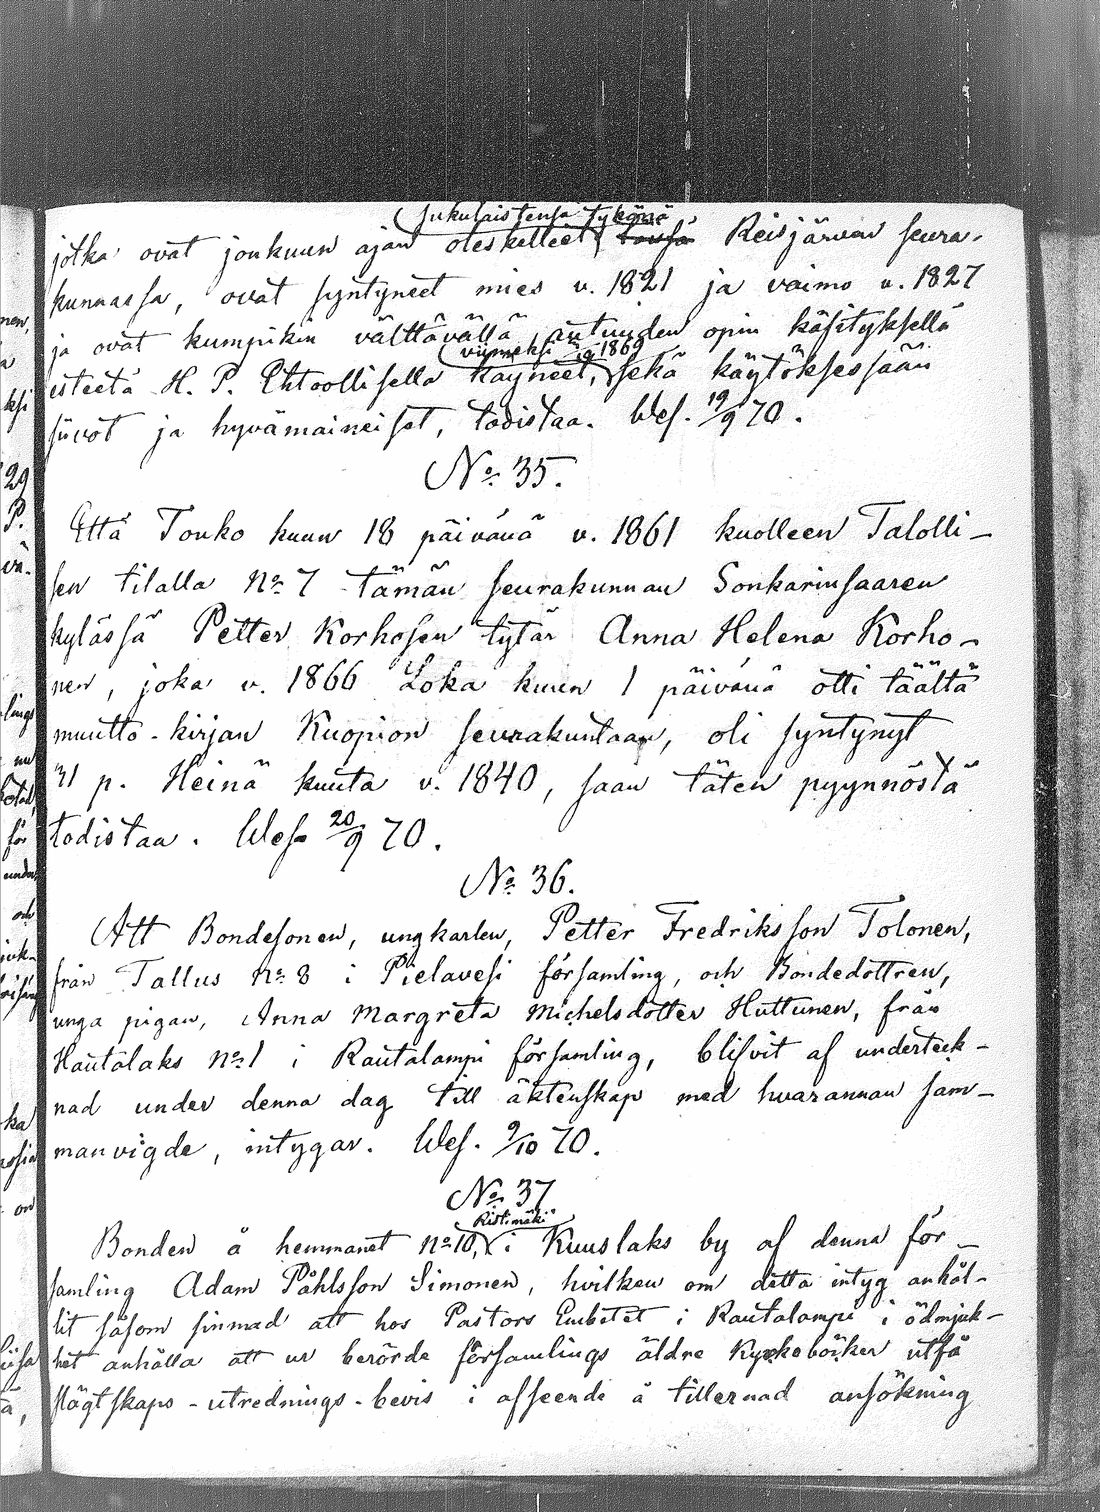 sukulaistensa tykönä
jotka ovat jonkuun ajan oleskelleet Reisjärven seura-
kunnassa, ovat syntyneet mies v. 1821 ja vaimo v. 1827
ja ovat kumpikin välttävällä autuuden opin käsityksellä
viimeksi 1869
esteetä H. P. Ehtoollisella käyneet, sekä käytöksessään
siivot ja hyvämaineiset, todistaa. Wes. 19/9 70.
No 35.
Että Touko kuun 18 päivänä v. 1861 kuolleen Talolli-
sen tilalla No 7 tämän seurakunnan Sonkarinsaaren
kylässä Petter Korhosen tytär Anna Helena Korho-
nen, joka v. 1866 Loka kuun 1 päivänä otti täältä
muutto-kirjan Kuopion seurakuntaan, oli syntynyt
31 p. Heinä kuuta v. 1840, saan täten pyynnöstä
todistaa. Wes 20/9 70.
No 36.
Att Bondesonen, ungkarlen, Petter Fredriksson Tolonen,
från Tallus No 8 i Pielavesi församling, och Bondedottren,
unga pigan, Anna Margreta Michelsdotter Huttunen, från
Hautolaks No 1 i Rautalampi församling, blifvit af underteck-
nad under denna dag till äktenskap med hvarannan sam-
manvigde, intygar. Wes. 9/10 70.
No 37
Ristimäki
Bonden å hemmanet No 10, i Kuuslaks by af denna för-
samling Adam Påhlsson Simonen, hvilken om detta intyg anhål-
lit såsom sinnad att hos Pastors Embetet i Rautalampi i ödmjuk-
het anhålla att ur berörde församlings äldre Kyrkoböcker utfå
slägtskaps-utrednings-bevis i afseende å tillernad ansökning